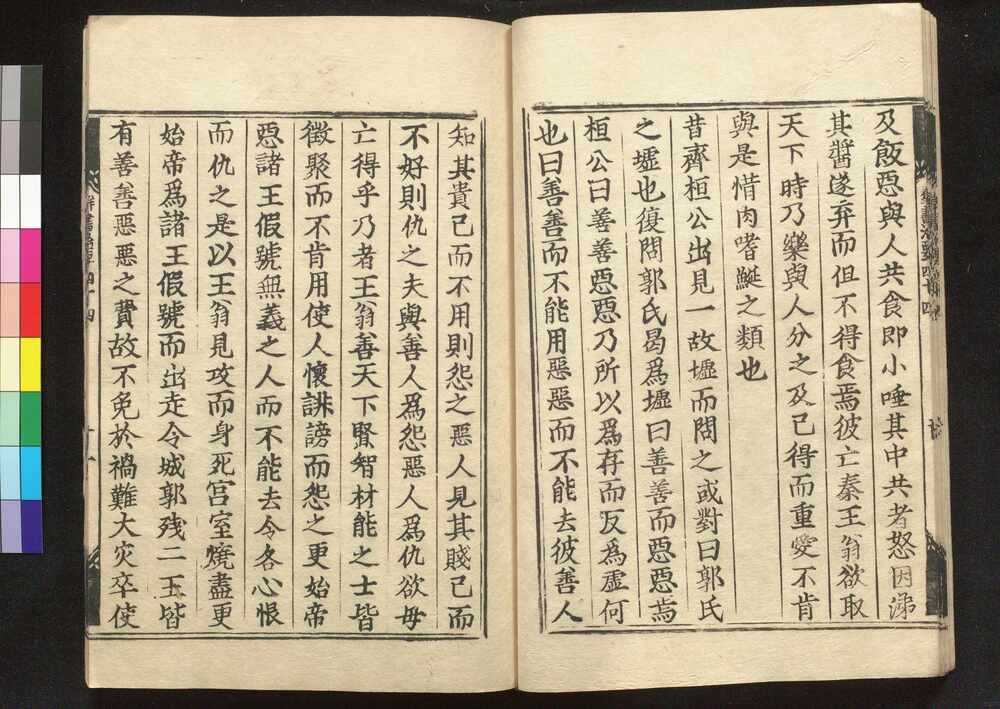 及飯惡與人共食即小唾其中共者怒因涕
其醬遂弃而但不得食焉彼亡秦王翁欲取
天下時乃樂與人分之及己得而重愛不肯
與是惜肉嗜鯅之類也
昔齊桓公出見一故墟而問之或對曰郭氏
之墟也復問郭氏曷爲墟曰善善而惡惡焉
桓公曰善善惡惡乃所以爲存而反爲虛何
也曰善善而不能用惡惡而不能去彼善人
知其貴己而不用則怨之惡人見其賤己而
不好則仇之夫與善人爲怨惡人爲仇欲毋
亡得乎乃者王翁善天下賢智材能之士皆
徵聚而不肯用使人懷誹謗而怨之更始帝
惡諸王假號無義之人而不能去令各心恨
而仇之是以王翁見攻而身死宮室燒盡更
始帝爲諸王假號而出走令城郭残二王皆
有善善惡惡之費故不免於禍難大灾卒使